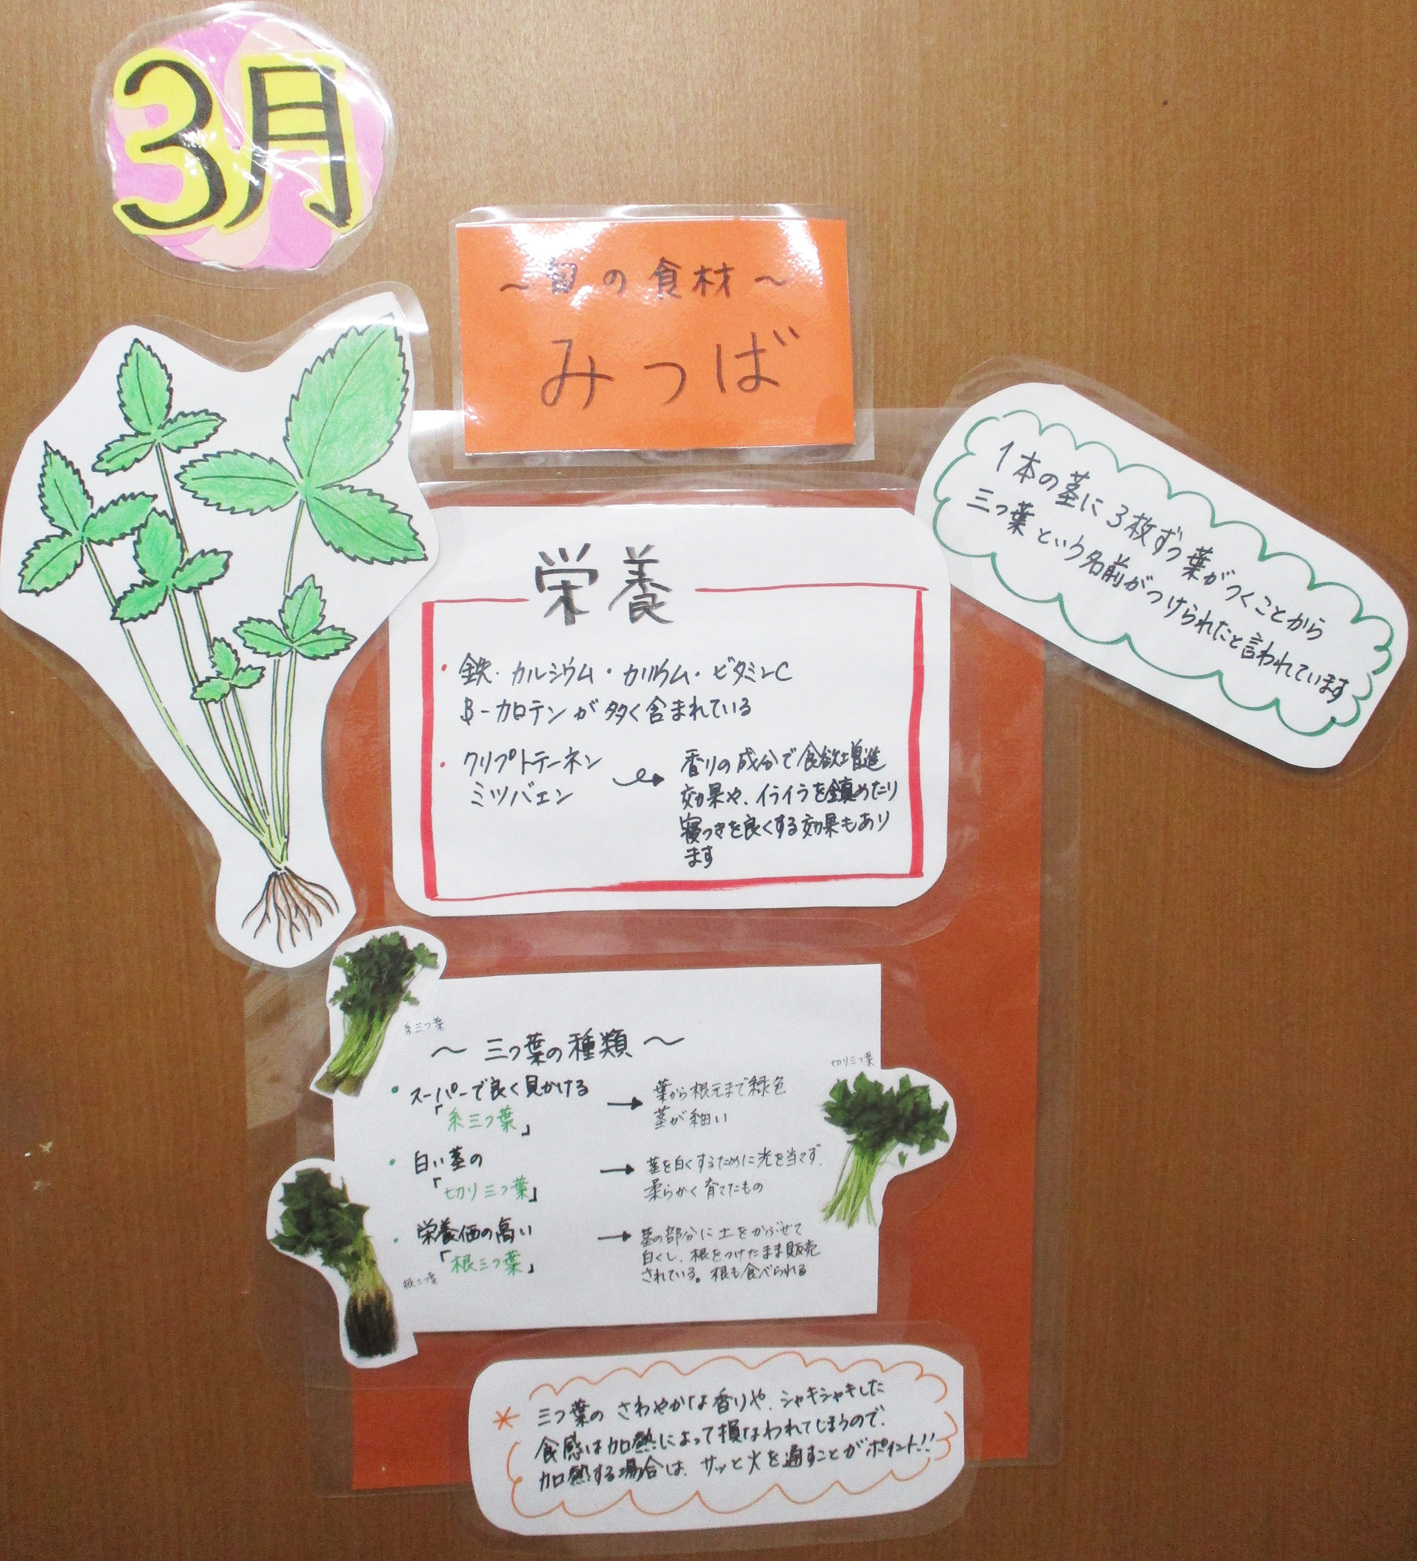 3月
～旬の食材～
みつば
1本の茎に3枚ずつ葉がつくことから
三つ葉という名前がつけられたと言われています
栄養
・鉄・カルシウム・カリウム・ビタミンC
β-カロテンが多く含まれている
・クリプトテーネン
ミツバエン
香りの成分で食欲増進
効果や、イライラを鎮めたり
寝つきを良くする効果もあり
ます
糸三つ葉
～三つ葉の種類～
・スーパーで良く見かける
「糸三つ葉」
→葉から根元まで緑色
茎が細い
切り三つ葉
・白い茎の
「切り三つ葉」
→茎を白くするために光を当てず、
柔らかく育てたもの
・栄養価の高い
「根三つ葉」
→茎の部分に土をかぶせて
白くし、根をつけたまま販売
されている。根も食べられる
根三つ葉
*三つ葉のさわやかな香りや、シャキシャキした
食感は加熱によって損なわれてしまうので、
加熱する場合は、サッと火を通すことがポイント!!